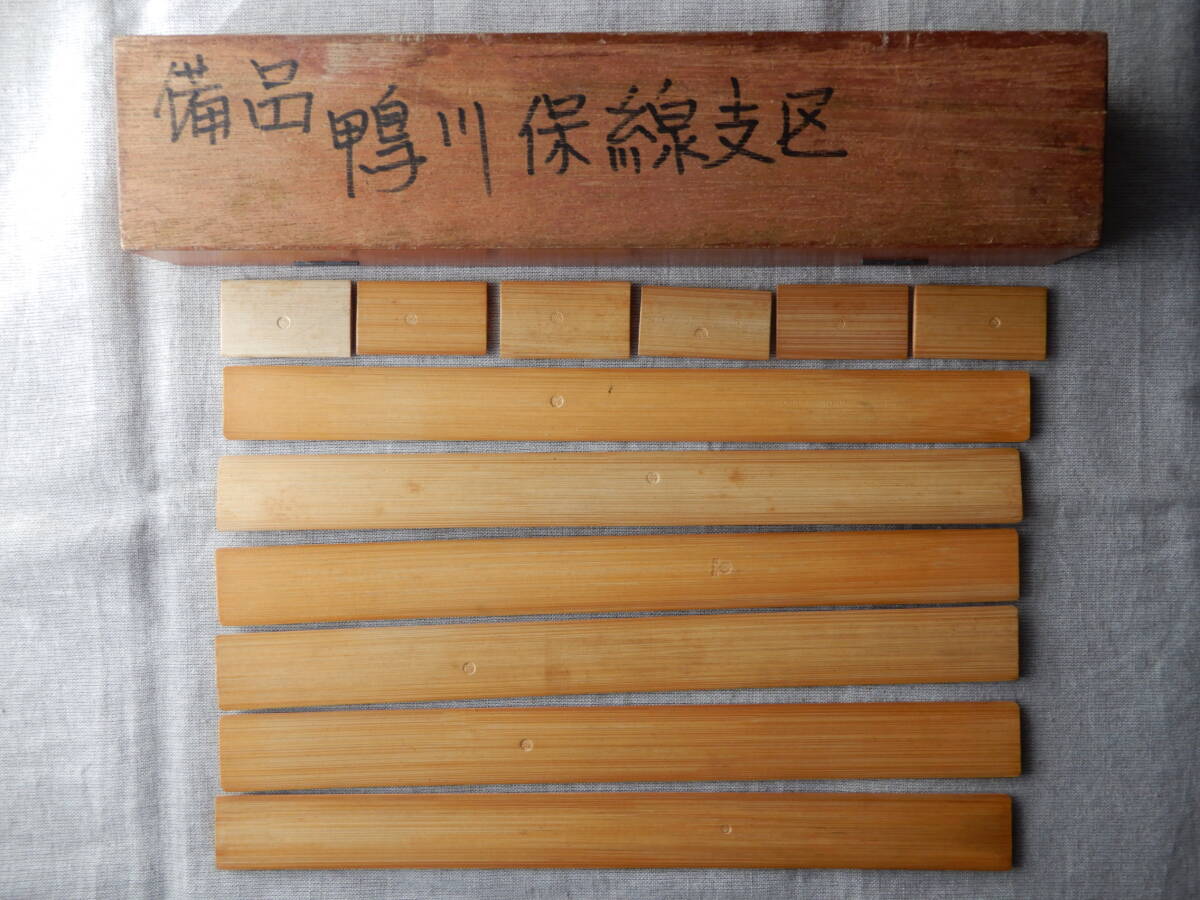 備品 鴨川保線支区